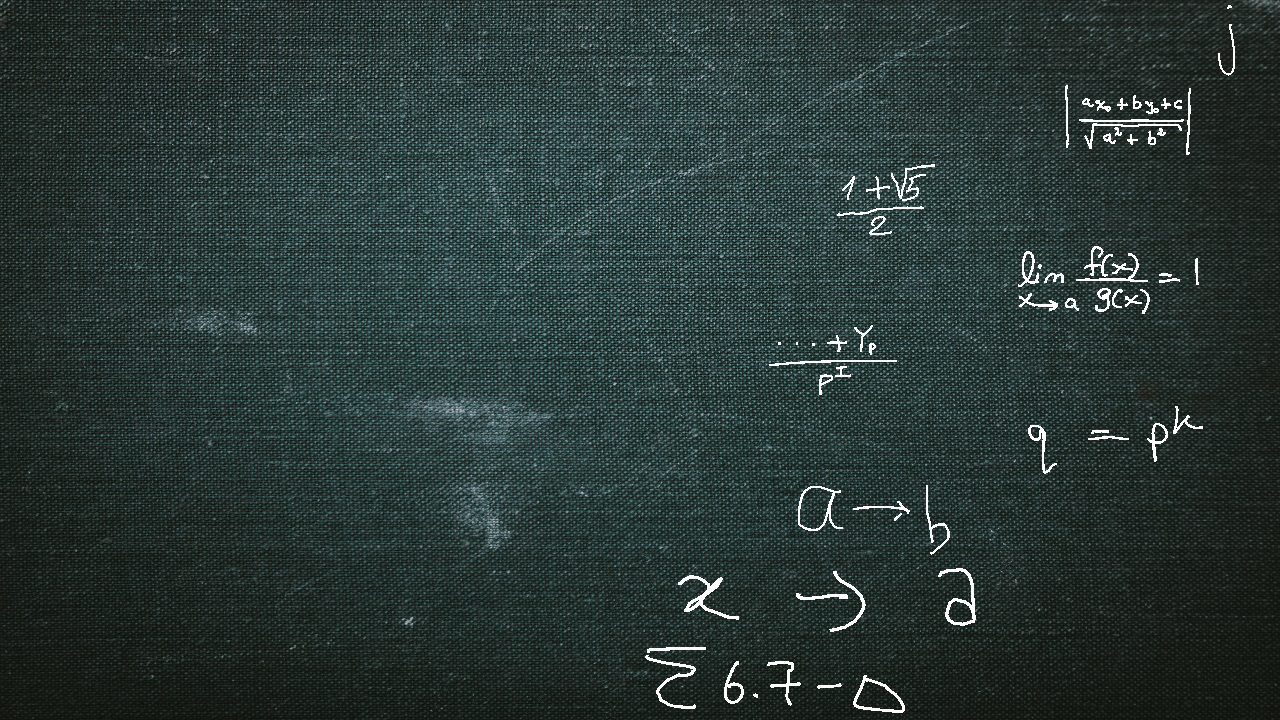 j
| (ax₀ + by₀ + c) / √(a² + b²) |
(1 + √5) / 2
lim x→a f(x) / g(x) = 1
(⋯ + Yₚ) / p^I
q = p^k
a → b
x → a
Σ 6.7 - 0